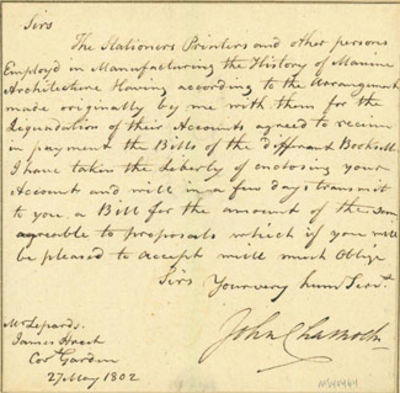 Sirs
The Stationers Printers and other persons
Employd in Manufacturing the History of Marine
Architecture Having according to the Arrangement
made originally by me with them for the
Liquidation of their Accounts agreed to receive
in payment the Bills of the different Booksell
I have taken the Liberty of enclosing your
Account and will in a few days transmit
to you a Bill for the amount of the same
agreeable to proposals which if you will
be pleased to accept will much Oblige
Sirs Your very hum Servt
John Charnock
Mr Lepards.
James Street
Cov Garden
27 May 1802